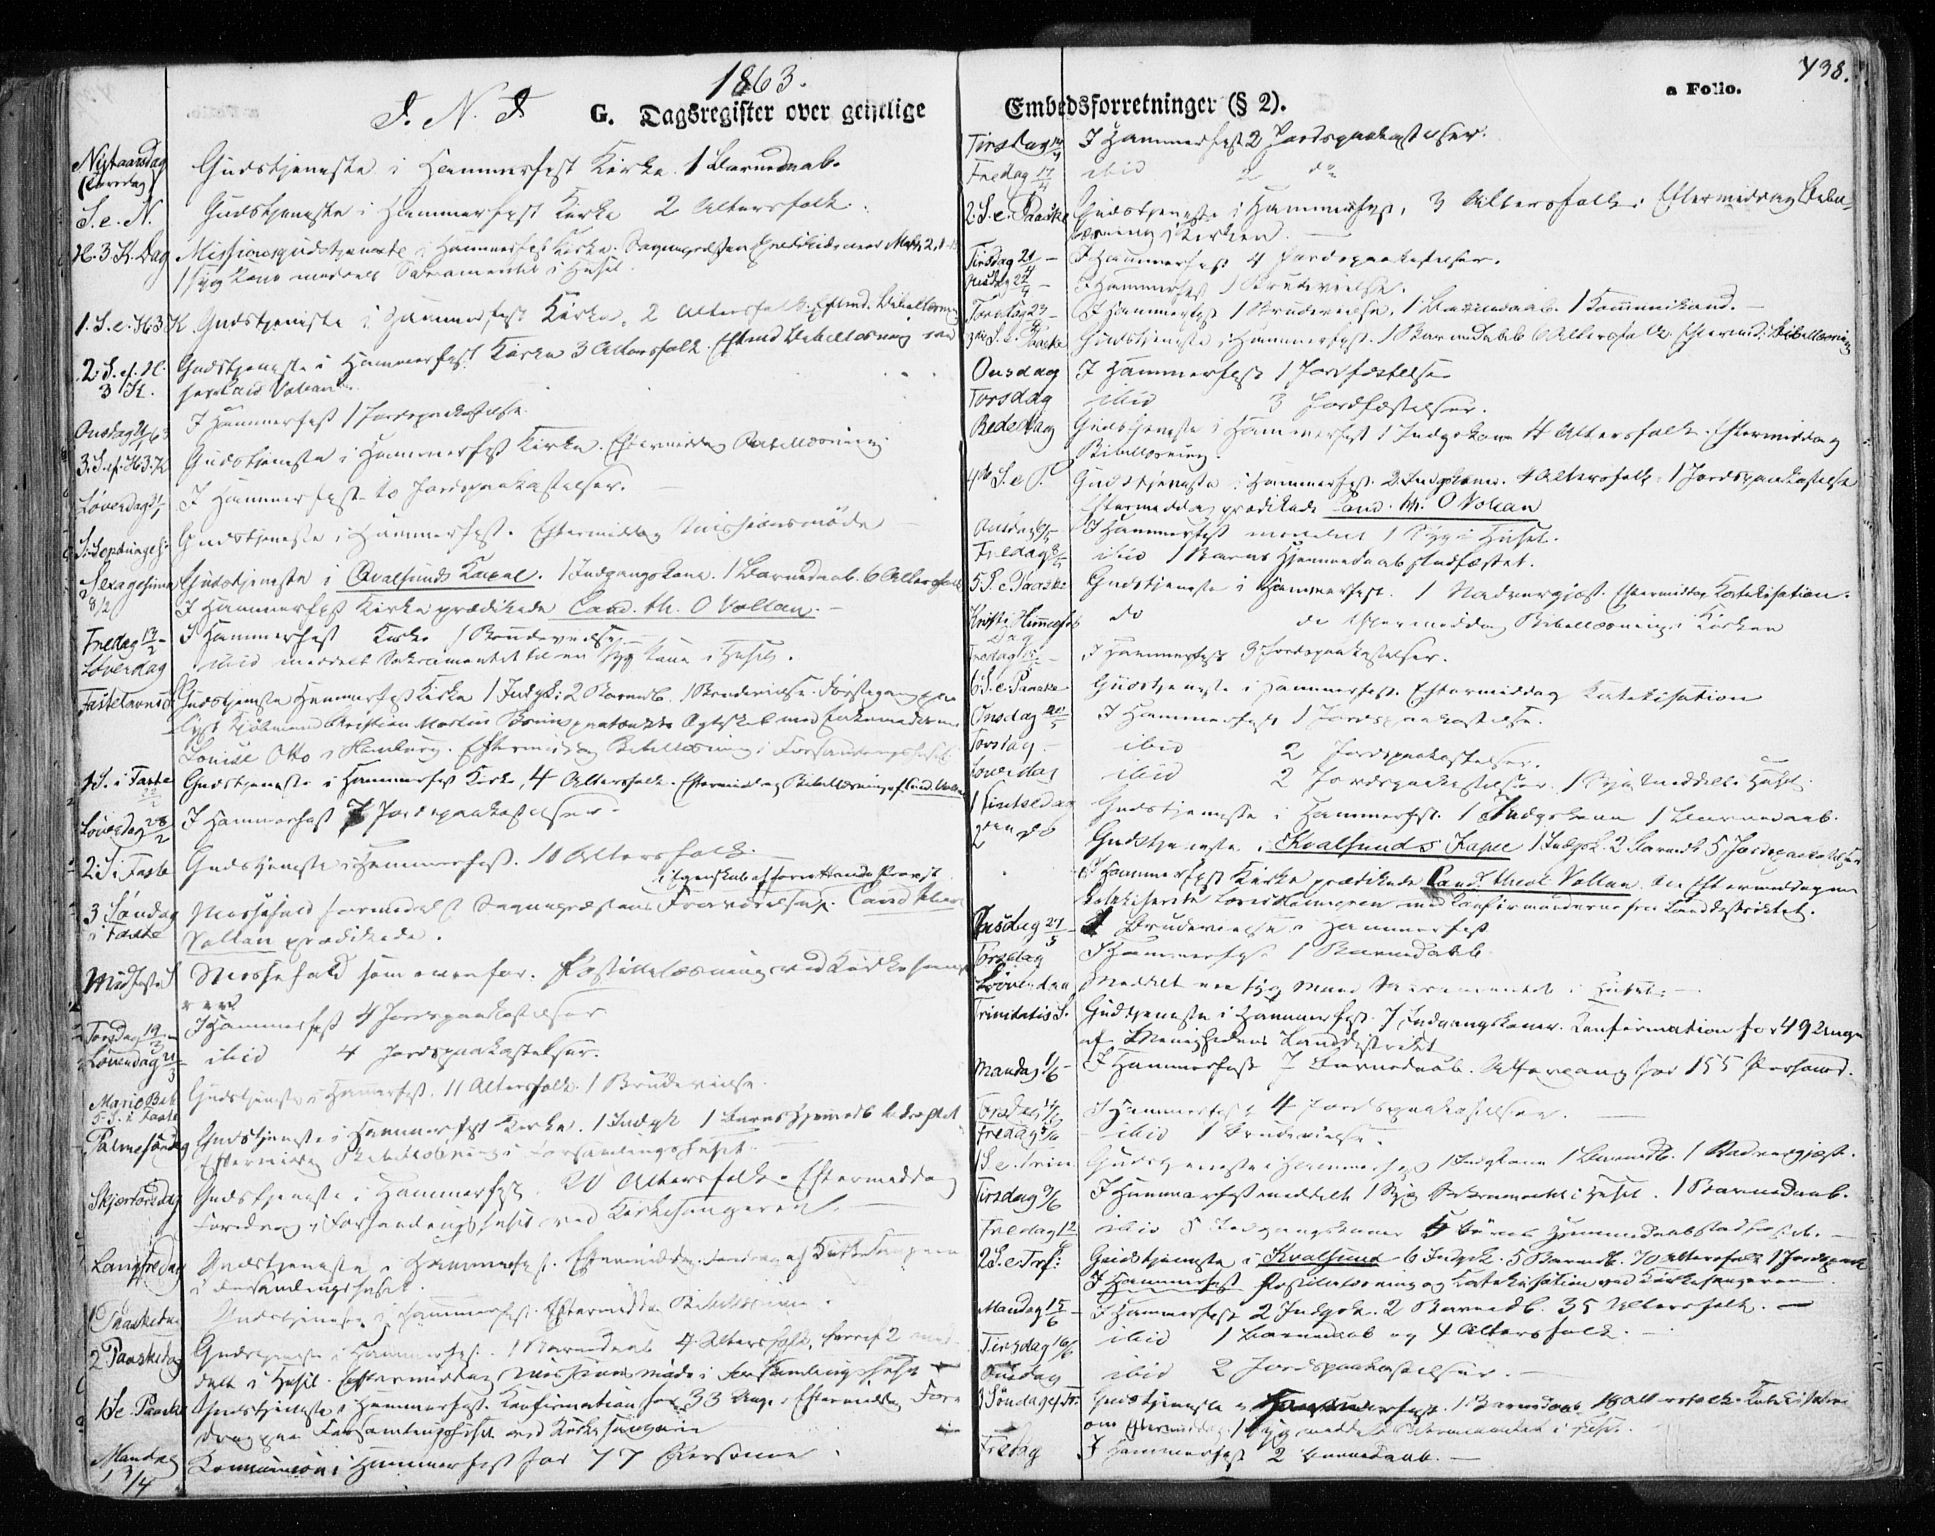 1863.
J. N. J. G. Dagsregister over geistlige
Nytaarsdag Gudstjeneste i Hammerfest Kirke. 1 Barnedaab.
(Torsdag)
S. e. N. Gudstjeneste i Hammerfest Kirke 2 Altersfolk.
H. 3 K. Dag Missionsgudstjeneste i Hammerfest Kirke. Sognepræsten
1 Syg Kone meddelt Sakramentet i Huset.
1. S. e. H3K. Gudstjeneste i Hammerfest Kirke. 2 Altersfolk. Efterm. Bibellæsning
2. S. ef. H. Gudstjeneste i Hammerfest Kirke 3 Altersfolk. Efterm Bibellæsning ved
3 K. Volland
Onsdag 21/1 63 I Hammerfest 1 Jordspaakastelse.
3. S. ef. H3.K Gudstjeneste i Hammerfest Kirke. Eftermiddag Bibellæsning.
Løverdag 31/1 I Hammerfest to Jordspaakastelser.
S. Septuages: Gudstjeneste i Hammerfest. Eftermiddag Missionsmøde
Sexagesima Gudstjeneste i Qvalsunds Kapel. 1 Indgangskone. 1 Barnedaab. 6 Altersfolk
8/2 I Hammerfest Kirke prædikede Cand. th. O Vollan.
Fredag 13/2 I Hammerfest Kirke 1 Brudevielse
Løverdag ibid meddelt Sakramentet til en syg Kone i Huset.
Fastelavns S. Gudstjeneste Hammerfest Kirke 1 Indgk. 2 Barnedb. 1 Brudevielse. Førstegang
lyst Kjøbmand Christian Morten Ægteskab med
Louise Otto i Hamburg. Eftermiddag Bibellæsning i Forsamlingshuset
1 S. i Faste Gudstjeneste i Hammerfest Kirke, 4 Altersfolk. Eftermiddag Bibellæsning af Cand. Vollan
22/2
Løverdag 28/2 I Hammerfest 7 Jordspaakastelser.
2. S. i Faste Gudstjeneste i Hammerfest. 10 Altersfolk.
i Egenskab af Provst
3 Søndag Messefald formedelst Sognepræstens Fraværelse. Cand. theol
i Faste Vollan prædikede.
Midfaste S Messefald som ovenfor. Postillelæsning ved Kirkesang
eren
Torsdag 19/3 I Hammerfest 4 Jordspaakastelser
Løverdag 21/3 ibid 4 Jordspaakastelser.
Mariæ Beb. Gudstjeneste i Hammerfest. 11 Altersfolk. 1 Brudevielse.
5. S. i Faste
Palmesøndag Gudstjeneste i Hammerfest Kirke. 1 Indgk 1 Barns Hjemmedb
Eftermiddag Bibellæsning i Forsamlingshuset.
Skjærtorsdag Gudstjeneste i Hammerfest. 20 Altersfolk. Eftermiddag
Foredrag i Forsamlingshuset ved Kirkesangeren.
Langfredag Gudstjeneste i Hammerfest. Eftermiddag Foredrag af Kirkesangeren
i Forsamlingshuset.
1 Paaskedag Gudstjeneste i Hammerfest. Eftermiddag Bibellæsning.
2 Paaskedag Gudstjeneste i Hammerfest. 1 Barnedaab 4 Altersfolk, hvoraf 2 med-
delt i Huset. Eftermiddag Missionsmøde i Forsamlingshuset
1 S e Paaske Gudstjeneste i Hammerfest. Konfirmation for 33 Unge. Eftermiddag Fore
drag paa Forsamlingshuset ved Kirkesangeren
Mandag Kommunion i Hammerfest for 77 Personer.
13/4
a Folio. 438.
Embedsforretninger (§ 2).
Tirsdag 14/4 I Hammerfest 2 Jordspaakastelser.
Fredag 17/4 ibid 2 do
2. S. e. Paaske Gudstjeneste i Hammerfest, 3 Altersfolk. Eftermiddag Bibel-
læsning i Kirken.
Tirsdag 21/4 I Hammerfest 4 Jordspaakastelser.
Onsdag 22/4 I Hammerfest 1 Brudevielse.
Torsdag 23 I Hammerfest 1 Brudevielse, 1 Barnedaab. 1 Kommunikand.
3die S. e. Paaske Gudstjeneste i Hammerfest. 1 Barnedaab 6 Altersfolk. Eftermid. Bibellæsning
Onsdag I Hammerfest 1 Jordfæstelse
Torsdag ibid 3 Jordfæstelser.
Bededag Gudstjeneste i Hammerfest 1 Indgskone 4 Altersfolk. Eftermiddag
Bibellæsning.
4de S. e. P. Gudstjeneste i Hammerfest. 2 Indgskoner. 4 Altersfolk. 1 Jordspaakastelse
Eftermiddag prædikede Cand. th. O Vollan
Onsdag 6/5 I Hammerfest meddelt 1 Syg i Huset.
Fredag 8/5 ibid 1 Barns Hjemmedaab stadfæstet.
5. S. e. Paaske Gudstjeneste i Hammerfest. 1 Nadvergjæst. Eftermiddag Katekisation.
Kristi Himmelf. do do Eftermiddag Bibellæsning i Kirken
Dag
Fredag 15 I Hammerfest 3 Jordspaakastelser.
6. S. e. Paaske Gudstjeneste i Hammerfest. Eftermiddag Katekisation
Onsdag 20/5 I Hammerfest 1 Jordspaakastelse.
Torsdag ibid 2 Jordspaakastelser.
Løverdag ibid 2 Jordspaakastelser. 1 Syg meddelt i Huset.
1 Pintsedag Gudstjeneste i Hammerfest. 1 Indgskone 1 Barnedaab.
2 Gudstjeneste i Kvalsunds Kapel 1 Indgk. 2 Barnedb 5 Jordspaakastelser
I Hammerfest Kirke prædikede Cand. theol. Vollan. Om Eftermiddagen
katekiserede med Konfirmanderne fra Landdistriktet.
Onsdag 27/5 1 Brudevielse i Hammerfest
Torsdag I Hammerfest 1 Barnedaab.
Løverdag Meddelt en syg Mand Sakramentet i Huset.
Trinitatis S. Gudstjeneste i Hammerfest. 7 Indgangskoner. Konfirmation for 49 Unge
af Menighedens Landdistrikt
Mandag 1/6 I Hammerfest 7 Barnedaab. Altergang for 155 Personer.
Torsdag 4/6 I Hammerfest 4 Jordspaakastelser.
Fredag 5/6 ibid 1 Brudevielse.
1 S. e. Trin. Gudstjeneste i Hammerfest 1 Indgskone 1 Barnedb. 1 Nadvergjæst.
Tirsdag 9/6 I Hammerfest meddelt 1 Syg Sakramentet i Huset. 1 Barnedaab.
Fredag 12/6 ibid 5 Indgangskoner 5 Børns Hjemmedaab stadfæstet.
2 S. e. Tref: Gudstjeneste i Kvalsund 6 Indgsk. 5 Barnedb. 70 Altersfolk 1 Jordspaak
I Hammerfest Postillelæsning og Katekisation ved Kirkesangeren
Mandag 15/6 I Hammerfest 2 Indgsk. 2 Barnedb. 35 Altersfolk.
Tirsdag 16/6 ibid 1 Barnedaab og 4 Altersfolk.
Onsdag ibid 2 Jordspaakastelser.
3 Søndag e. Tr. Gudstjeneste i Hammerfest. 1 Barnedaab 18 Altersfolk. Katekisation
om Eftermiddag. 1 Syg meddelt Sakramentet i Huset.
Fredag I Hammerfest 2 Barnedaab.